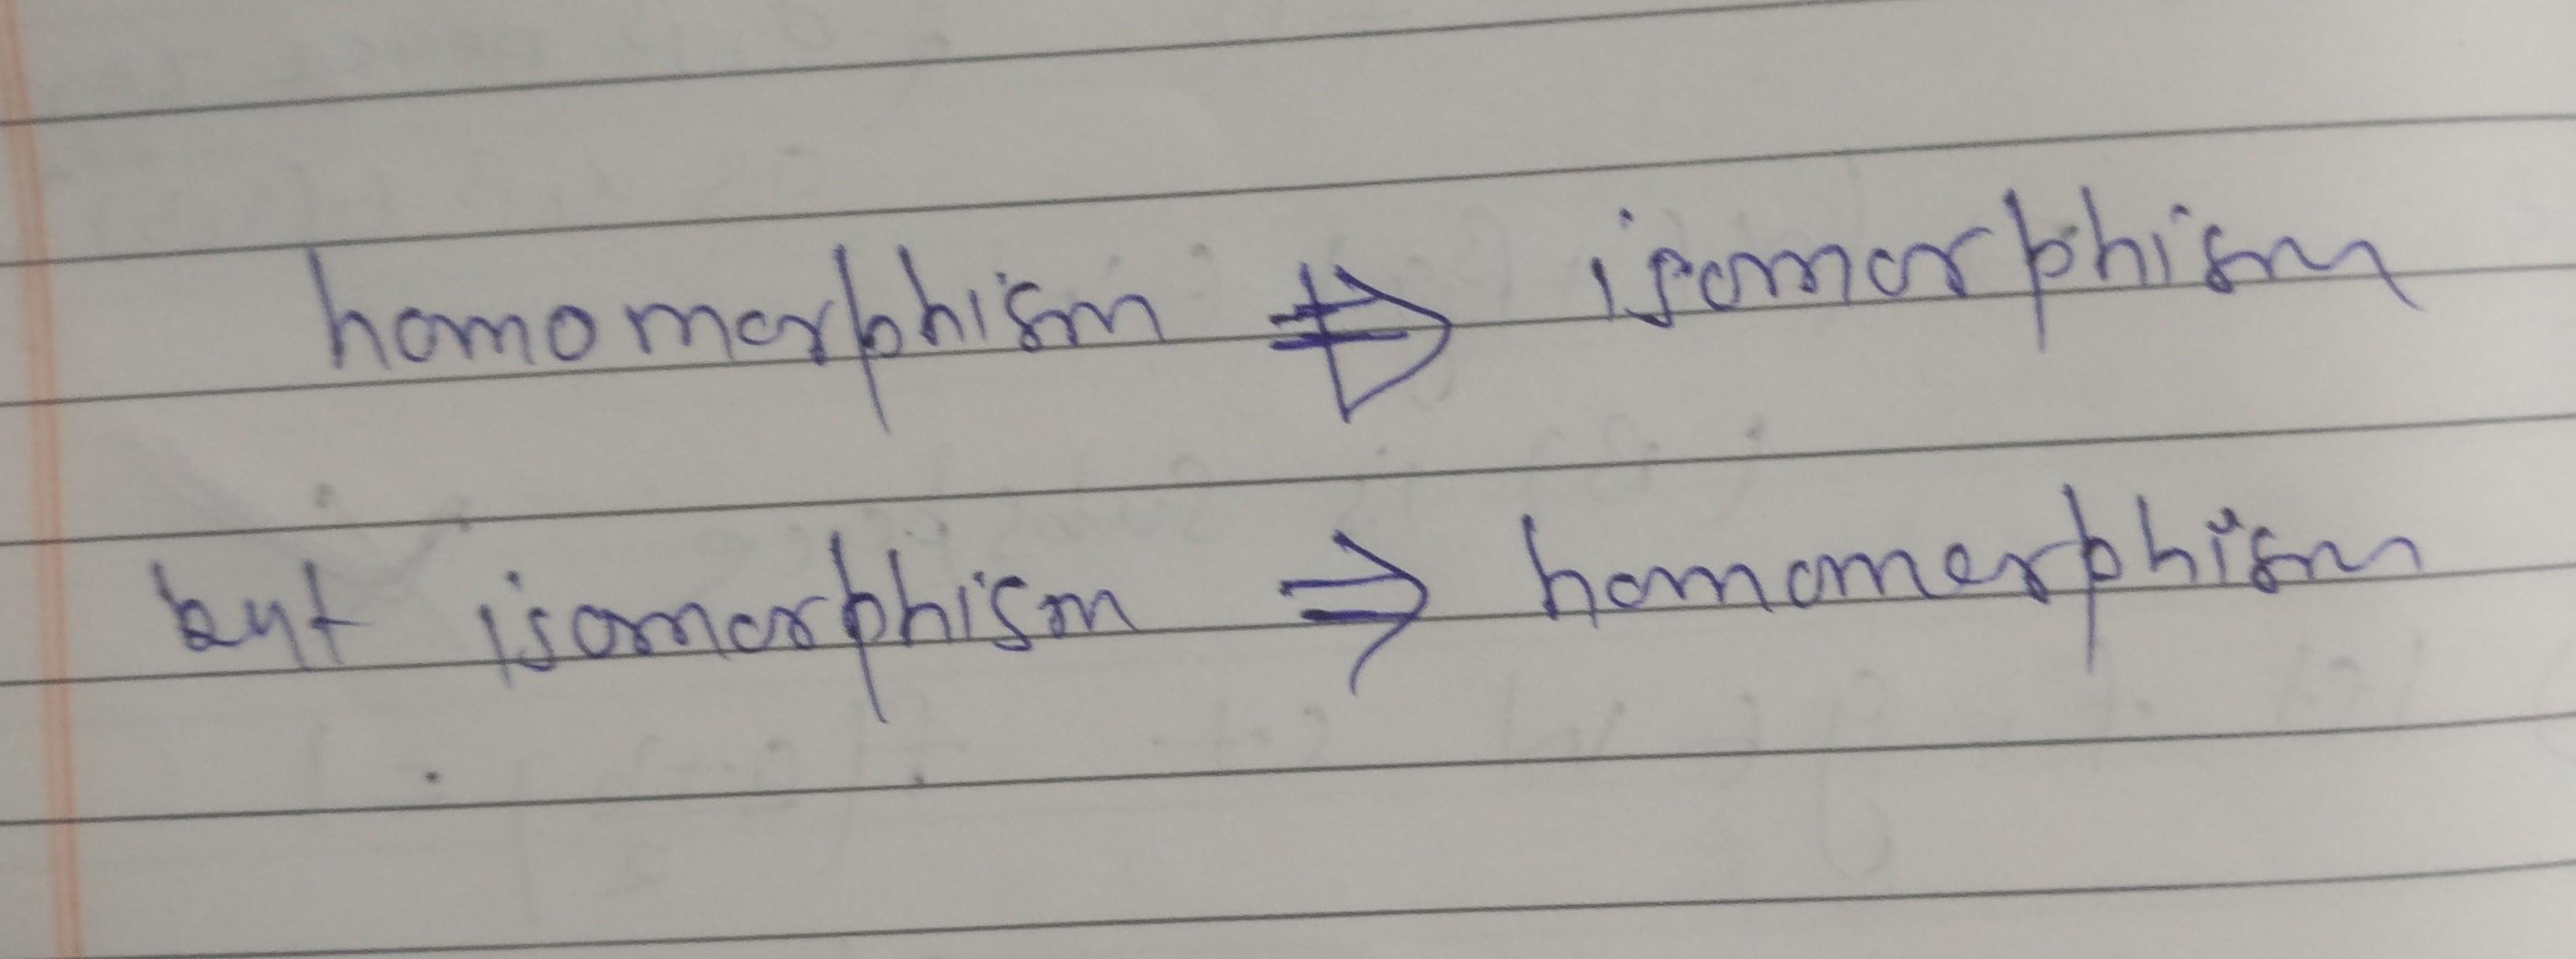 homomorphism ⇏ isomorphism
but isomorphism ⇒ homomorphism